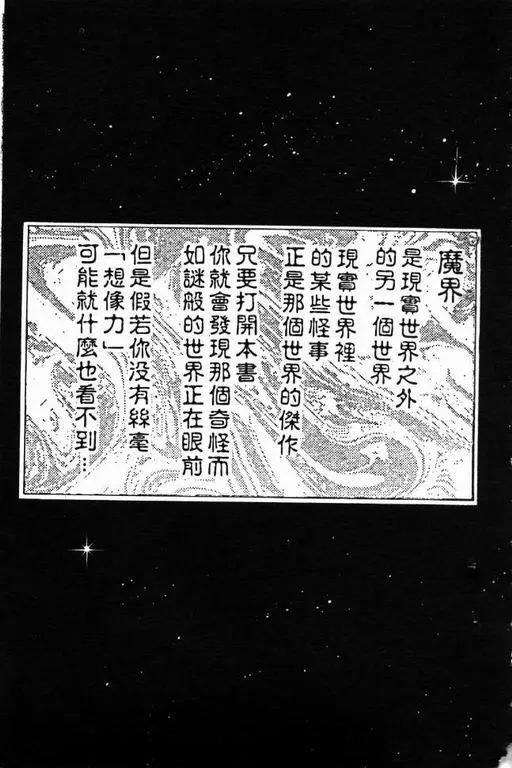 魔界
是現實世界之外
的另一個世界
現實世界裡
的某些怪事
正是那個世界的傑作
只要打開本書
你就會發現那個奇怪而
如謎般的世界正在眼前
但是假若你没有絲毫
「想像力」
可能就什麼也看不到…